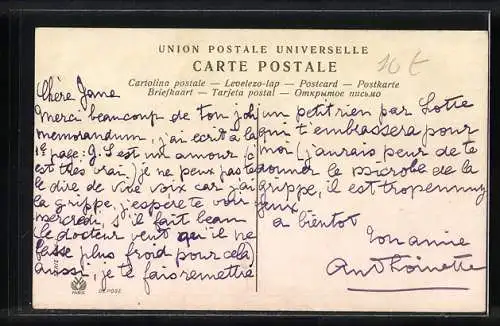 UNION POSTALE UNIVERSELLE
CARTE POSTALE
Cartolina postale — Levelezo-lap — Postcard — Postkarte
Briefkaart — Tarjeta postal — Открытое письмо
10 €
Chère Jane
Merci beaucoup de ton joli
memorandum, j'ai écrit à la
1e page: G. S est un amour (c'
est très vrai) je ne peux pas te
le dire de vive voix car j'ai
la grippe, j'espère te voir
mercredi, s'il fait beau
le docteur veut qu'il ne
fasse plus froid pour cela)
aussi, je te fais remettre
un petit rien par Lotte
qui t'embrassera pour
moi (j'aurais peur de te
donner le microbe de la
grippe, il est trop ennuy
eux.
a bientot
ton amie
Anthoinette
PARIS
DÉPOSÉ